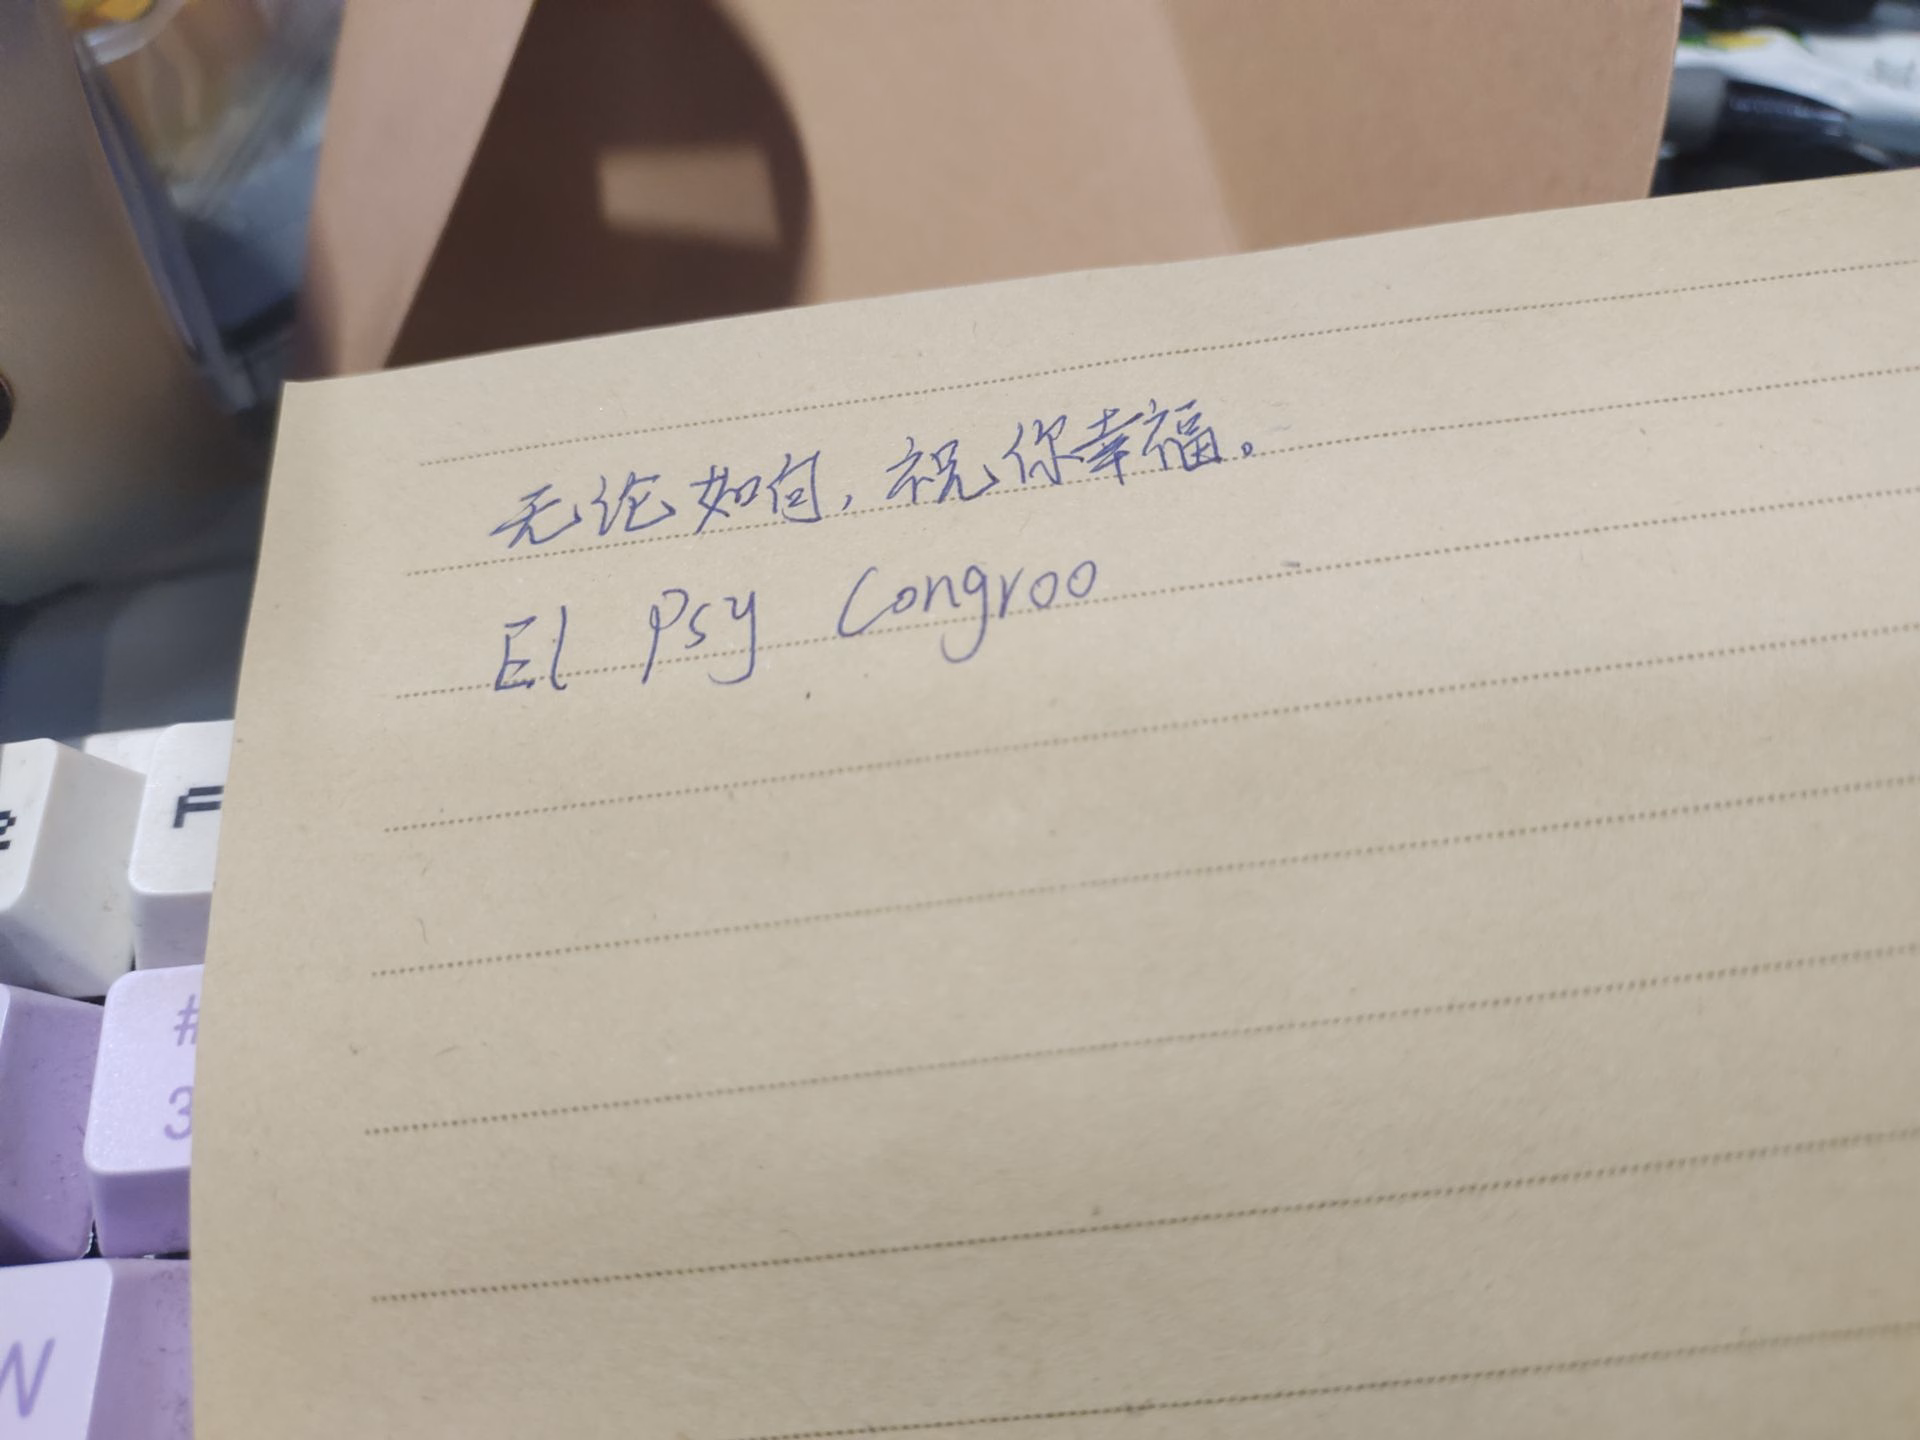 无论如何，祝你幸福。
El Psy Congroo
F
#
3
W